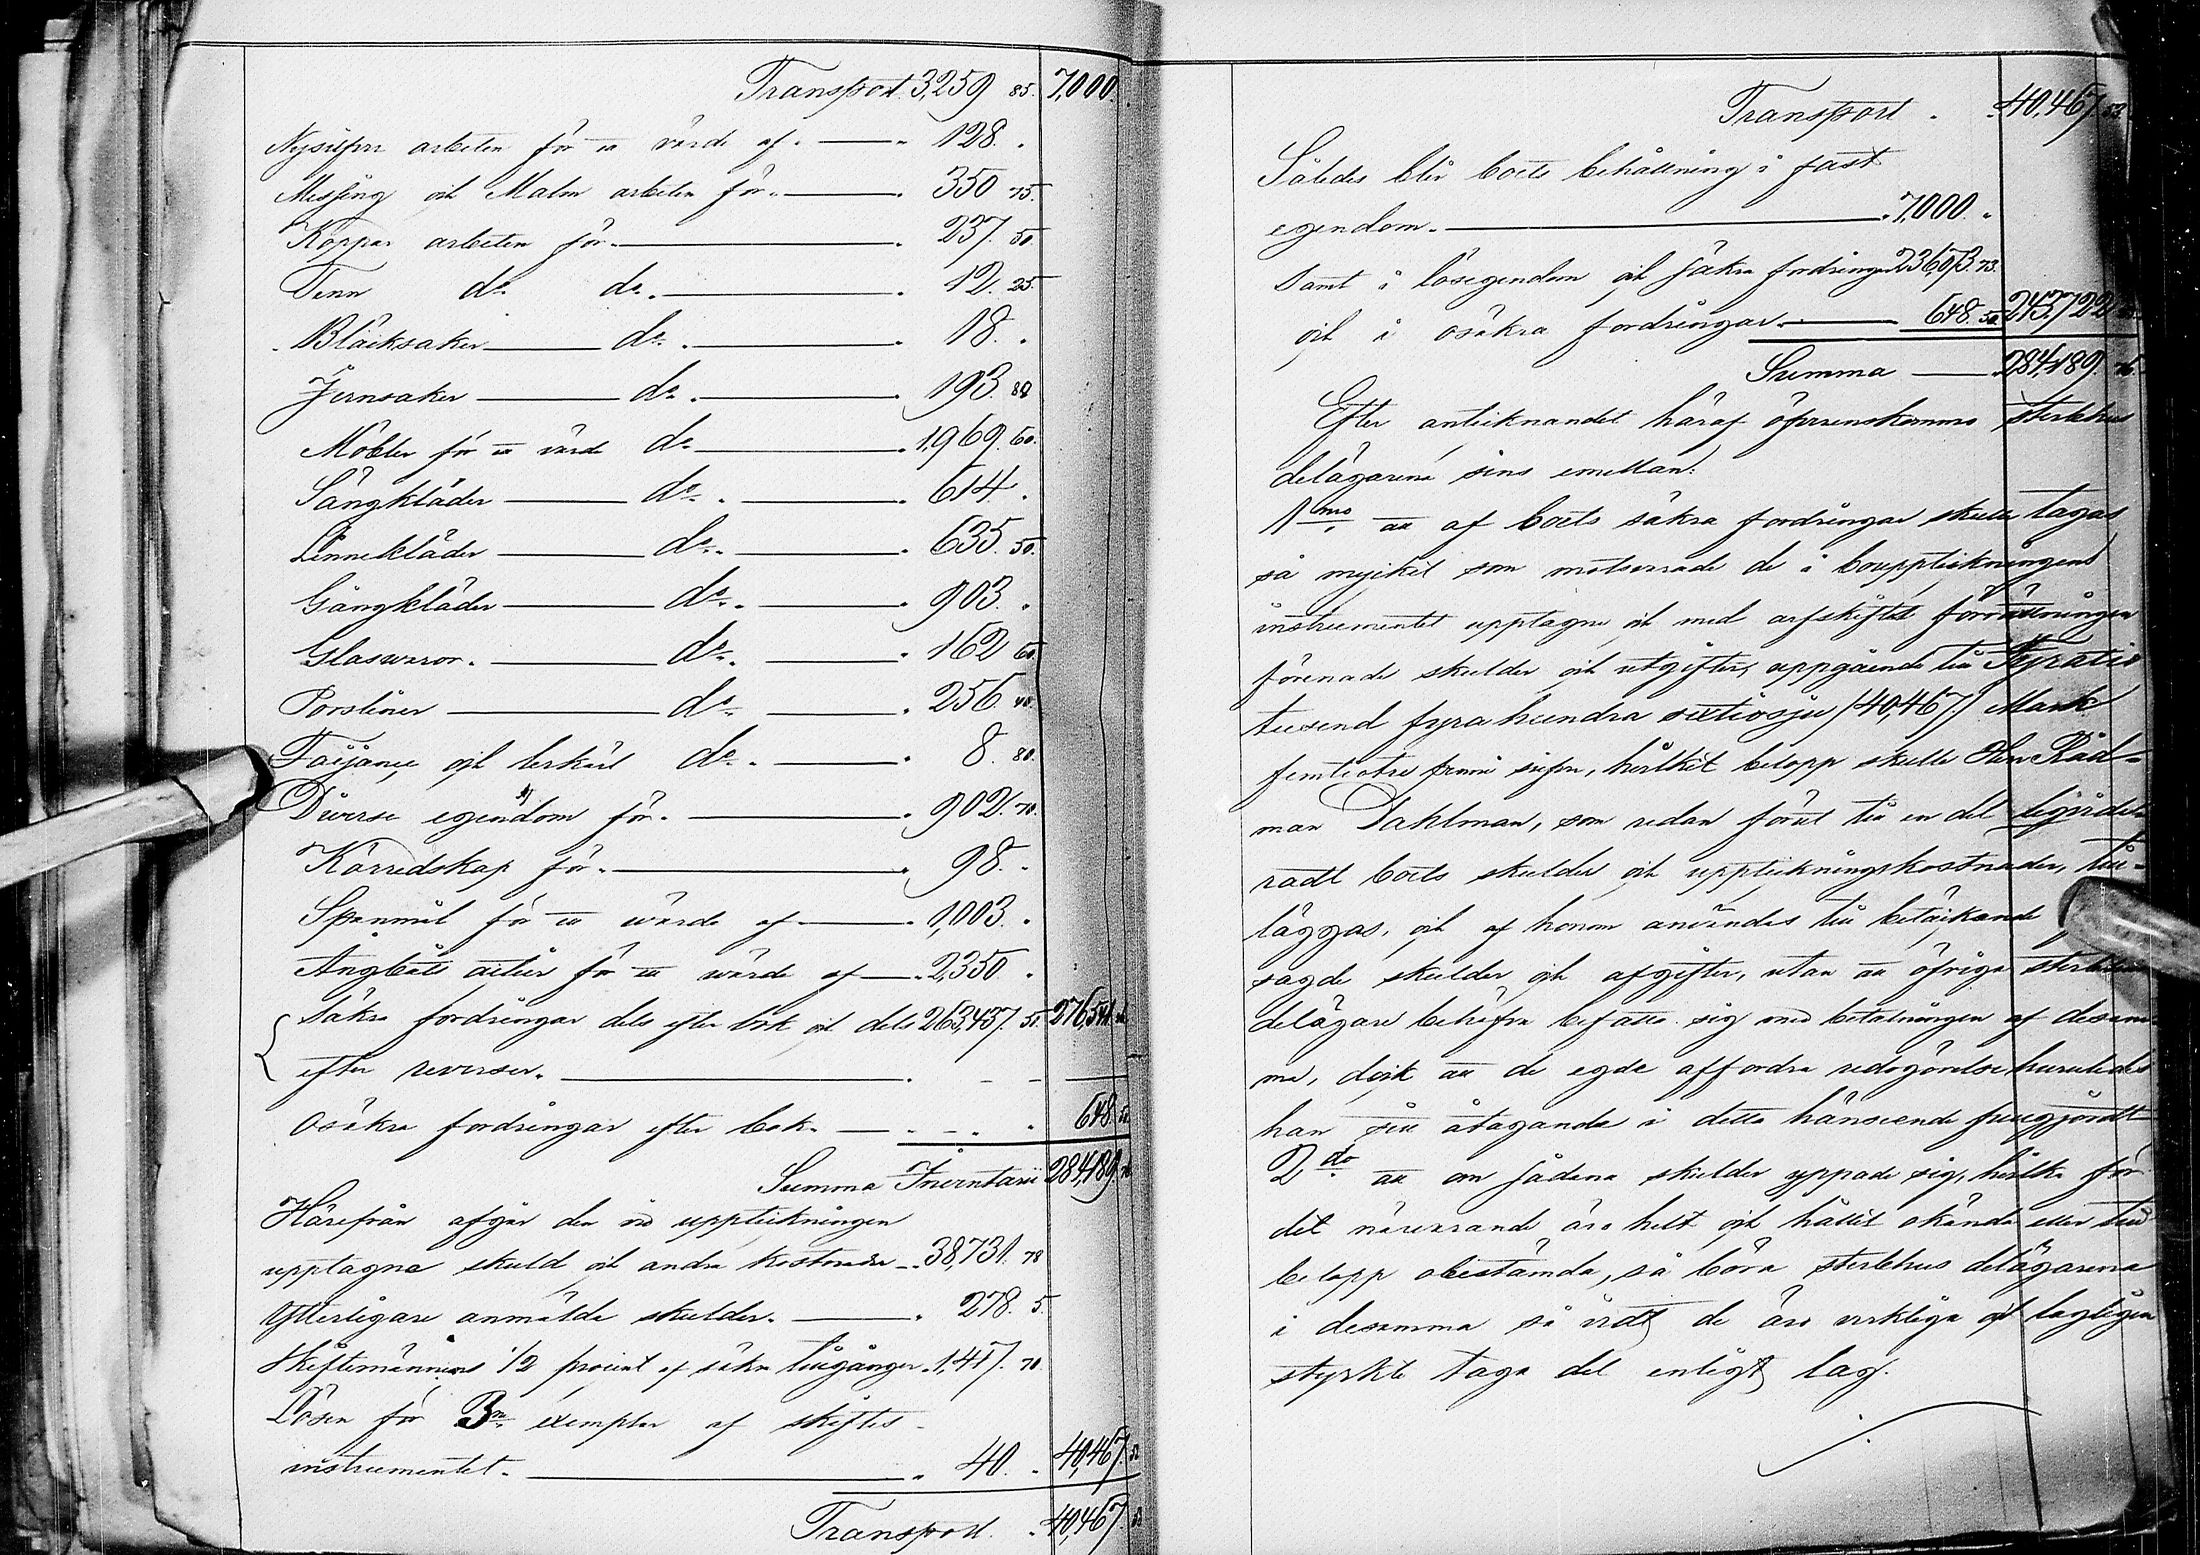 Transport 3,259 85. 7,000.
Nysilfver arbeten för ett värde af. — 128.
Messing och Malm arbeten för. — 350 75.
Koppar arbeten för. — 237. 50.
Tenn do do. — 12. 25.
Bläcksaker — do. — 18.
Jernsaker — do. — 193. 80
Möbler för ett värde do — 1,969. 60.
Sängkläder — do. — 614.
Linnekläder — do. — 635. 50.
Gångkläder — do. — 903.
Glasvaror. — do. — 162 60.
Porsliner — do. — 256. 40.
Faijance och lerkärl do. — 8. 80.
Diverse egendom för. — 902. 70.
Körredskap för. — 98.
Spanmål för ett värde af — 1,003.
Ångbåts actier för ett värde af — 2,350.
Säkra fordringar dels efter bok och dels 263,437. 51. 276,541.
efter reverser. —
Osäkra fordringar efter bok. — 648. 50
Summa Inventarii 284,189. 76
Härifrån afgår den vid uppteckningen
upptagna skuld och andra kostnader — 38,731. 78
Ytterligare anmälda skulder. — 278. 5.
Skiftemännens 1/2 procent af säkra tillgångar. 1,417. 70.
Lösen för 3ne exemplar af skiftes-
instrumentet. — 40. 40,467. 53
Transport. 40,467. 53
Transport. 40,467. 53.
Således blir boets behållning i fast
egendom. — 7,000.
samt i lösegendom och säkra fordringar 236,073. 73.
och i osäkra fordringar. — 648. 50 243,722
Summa — 284,189. 76.
Efter antecknandet häraf öfverenskommo sterbhus
delägarene sins emellan:
1mo att af boets säkra fordringar skulle tagas
så mycket som motsvarade de i bouppteckningens
instrumentet upptagne och med arfskiftets förrättningen
förenade skulder och utgifter, uppgående till Fyratio
tusend fyra hundra sextiosju /40,467/ Mark
femtiotre penni silfver, hvilket belopp skulle Herr Råd-
man Dahlman, som redan förut till en del liqvide-
radt boets skulder och uppteckningskostnader, till-
läggas, och af honom användas till betäckande
sagde skulder och afgifter, utan att öfriga sterbhus
delägare behöfva befatta sig med betalningen af desam-
ma, dock att de egde affordra redogörelse huruledes
han sitt åtagande i detta hänseende fullgjordt
2do att om sådana skulder yppade sig, hvilka för
det närvarande äro helt och hållet okända eller till
belopp obestämda, så böra sterbhus delägarena
i desamma så vidt de äro verkliga och lagligen
styrkte taga del enligt lag.